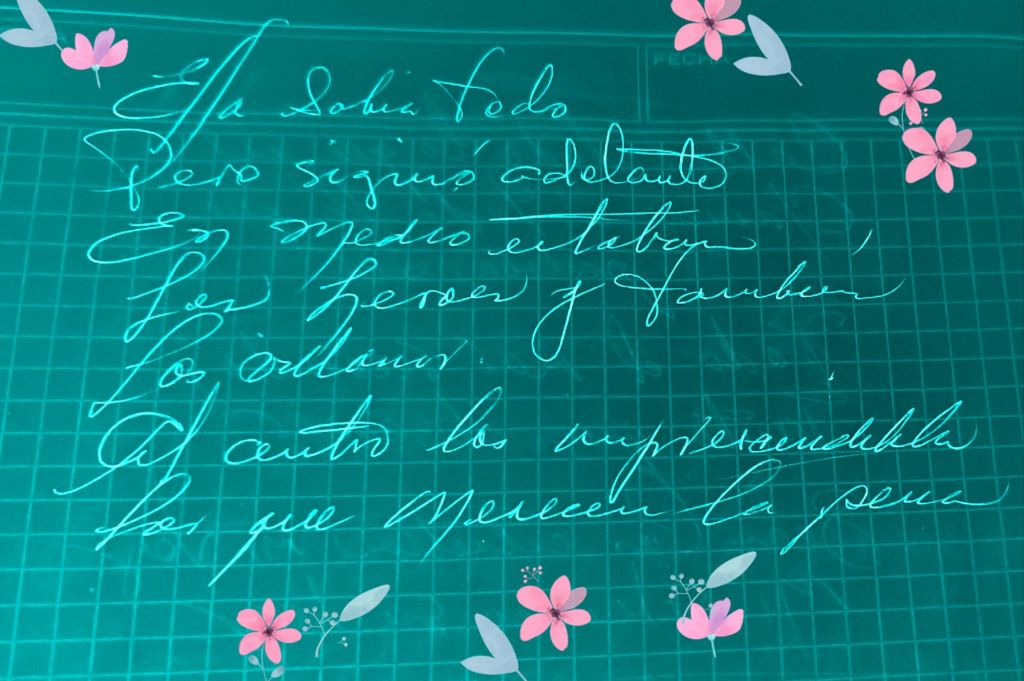 FECHA
Ella Sabia todo
Pero siguió adelante
En medio estaban
Los heroes y también
Los villanos.
Al centro los imprescindibles
Los que merecen la pena